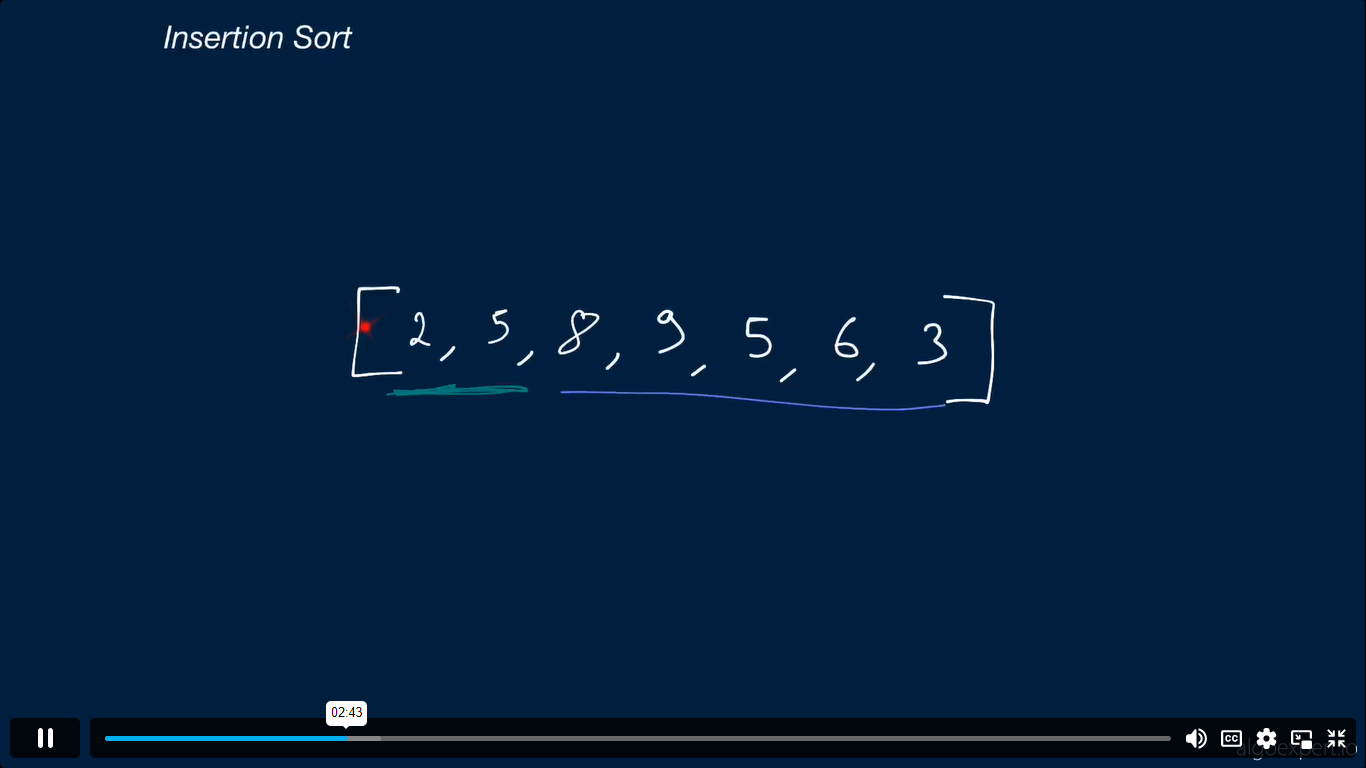 Insertion Sort
[2, 5, 8, 9, 5, 6, 3]
02:43
CC
algoexpert.io